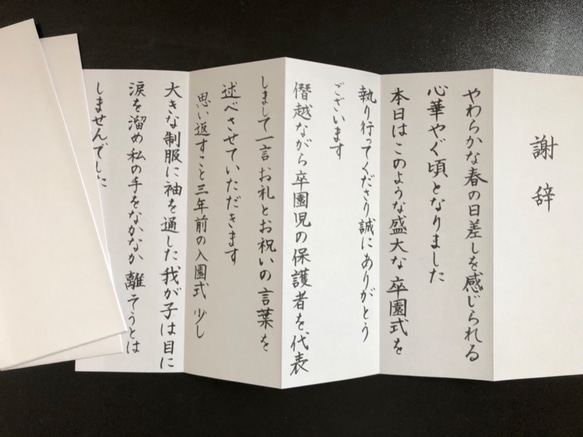 謝辞
やわらかな春の日差しを感じられる
心華やぐ頃となりました
本日はこのような盛大な卒園式を
執り行ってくださり誠にありがとう
ございます
僭越ながら卒園児の保護者を代表
しまして一言お礼とお祝いの言葉を
述べさせていただきます
思い返すこと三年前の入園式 少し
大きな制服に袖を通した我が子は目に
涙を溜め私の手をなかなか離そうとは
しませんでした